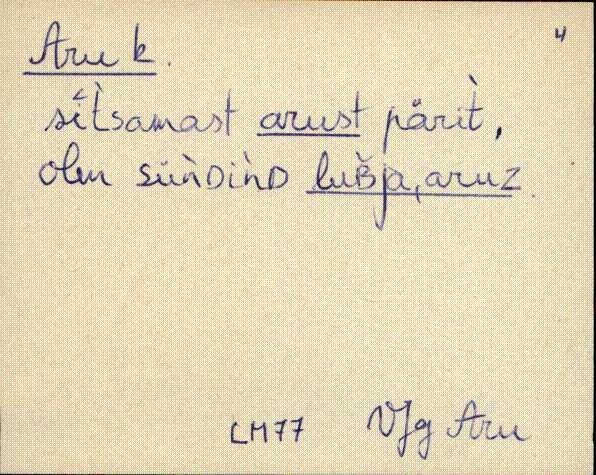 4
Aru k.
sit̀samast arust pärit̀,
olen sǜǹDiǹD luʙja, aruz
LM77 VJg Aru